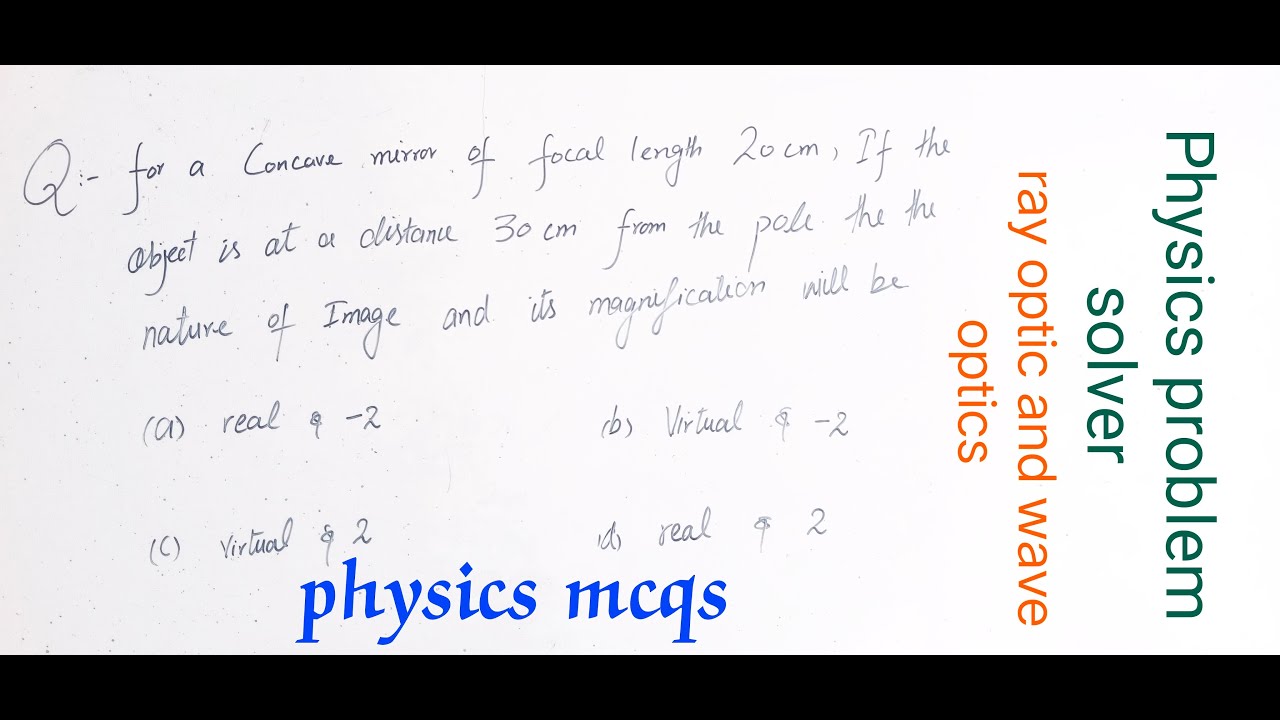 Q:- for a Concave mirror of focal length 20 cm, If the
object is at a distance 30 cm from the pole the the
nature of Image and its magnification will be
(a) real & -2 (b) Virtual & -2
(c) virtual & 2 (d) real & 2
physics mcqs
Physics problem
solver
ray optic and wave
optics